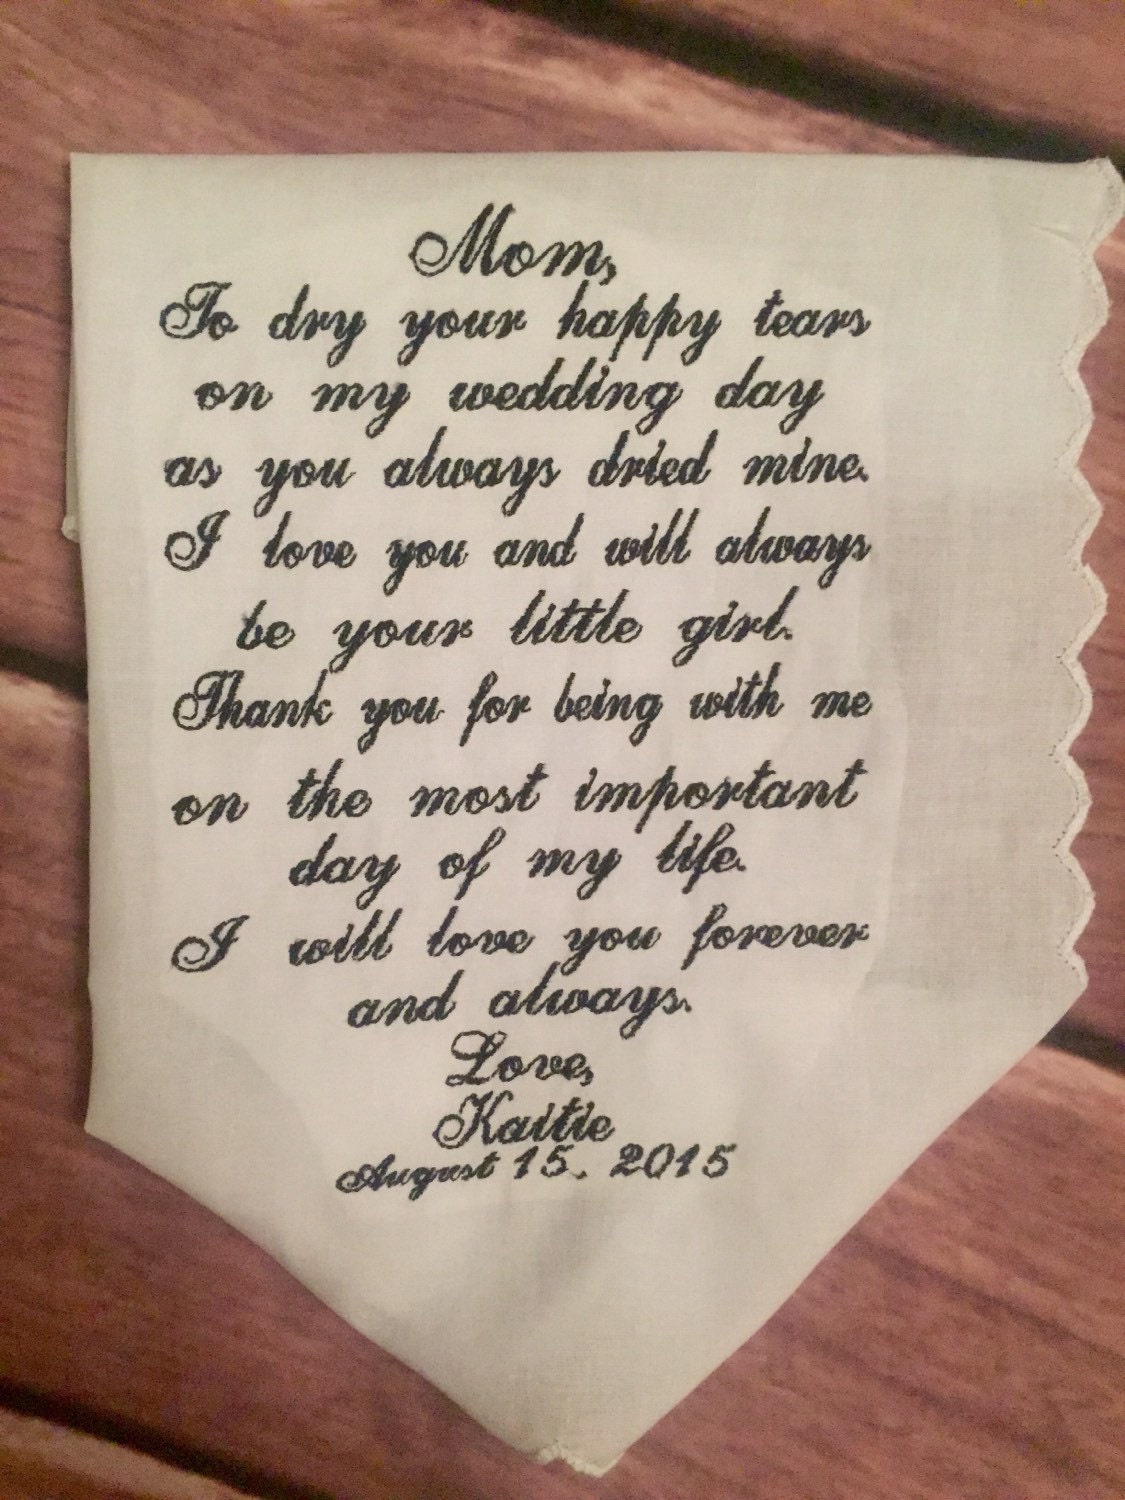 Mom,
To dry your happy tears
on my wedding day
as you always dried mine.
I love you and will always
be your little girl.
Thank you for being with me
on the most important
day of my life.
I will love you forever
and always.
Love,
Kaitie
August 15. 2015